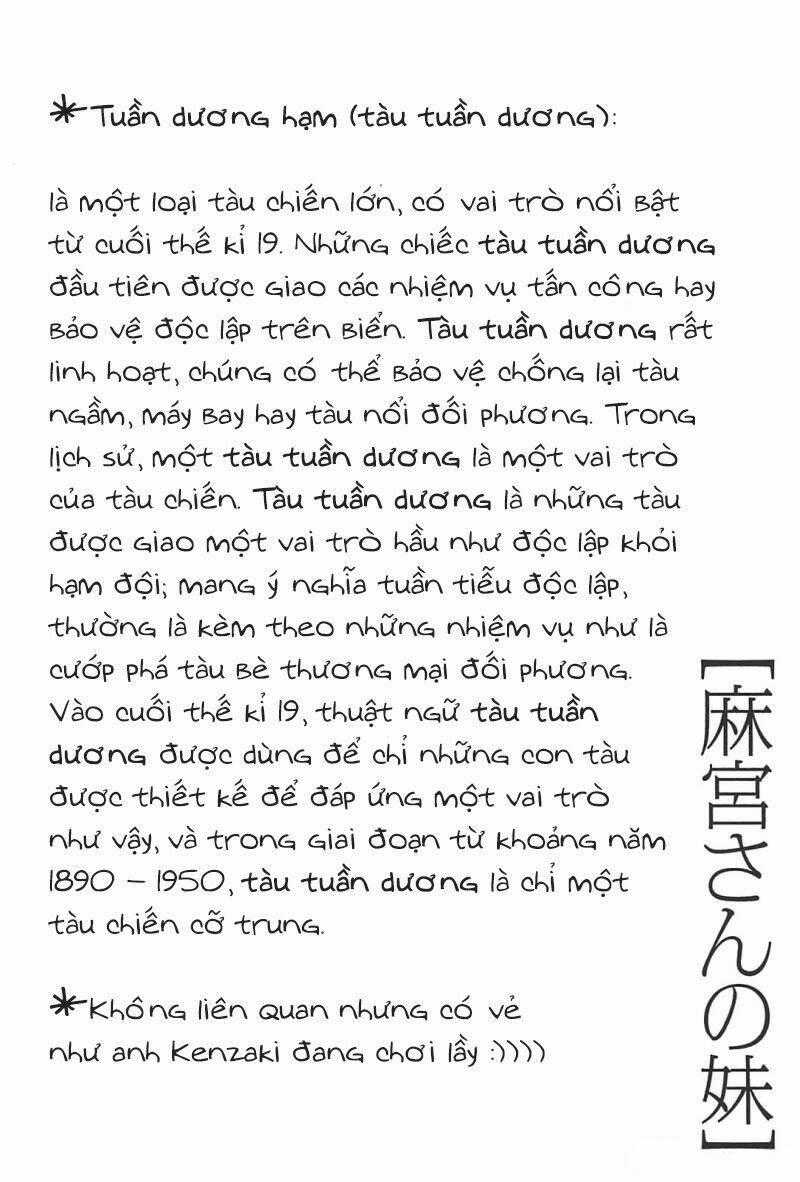 *Tuần dương hạm (tàu tuần dương):
là một loại tàu chiến lớn, có vai trò nổi bật
từ cuối thế kỉ 19. Những chiếc tàu tuần dương
đầu tiên được giao các nhiệm vụ tấn công hay
bảo vệ độc lập trên biển. Tàu tuần dương rất
linh hoạt, chúng có thể bảo vệ chống lại tàu
ngầm, máy bay hay tàu nổi đối phương. Trong
lịch sử, một tàu tuần dương là một vai trò
của tàu chiến. Tàu tuần dương là những tàu
được giao một vai trò hầu như độc lập khỏi
hạm đội; mang ý nghĩa tuần tiễu độc lập,
thường là kèm theo những nhiệm vụ như là
cướp phá tàu bè thương mại đối phương.
Vào cuối thế kỉ 19, thuật ngữ tàu tuần
dương được dùng để chỉ những con tàu
được thiết kế để đáp ứng một vai trò
như vậy, và trong giai đoạn từ khoảng năm
1890 – 1950, tàu tuần dương là chỉ một
tàu chiến cỡ trung.
*Không liên quan nhưng có vẻ
như anh Kenzaki đang chơi lầy :))))
【麻宮さんの妹】